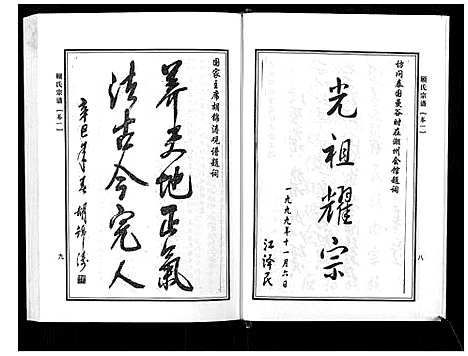 顾氏宗谱（卷一）
访问泰国曼谷时在潮州会馆题词
光祖耀宗
一九九九年十一月六日
江泽民
八
国家主席胡锦涛观谱题词
养天地正氣
法古今完人
辛巳年春 胡锦涛
九
顾氏宗谱（卷一）